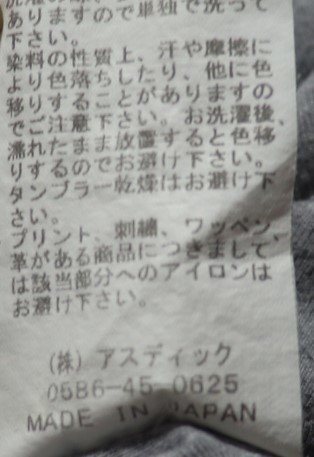 ありますので単独で洗って
下さい。
染料の性質上、汗や摩擦に
より色落ちしたり、他に色
移りすることがありますの
でご注意下さい。お洗濯後、
濡れたまま放置すると色移
りするのでお避け下さい。
タンブラー乾燥はお避け下
さい。
プリント、刺繍、ワッペン、
革がある商品につきまして、
は該当部分へのアイロンは
お避け下さい。
(株) アスディック
0586-45-0625
MADE IN JAPAN